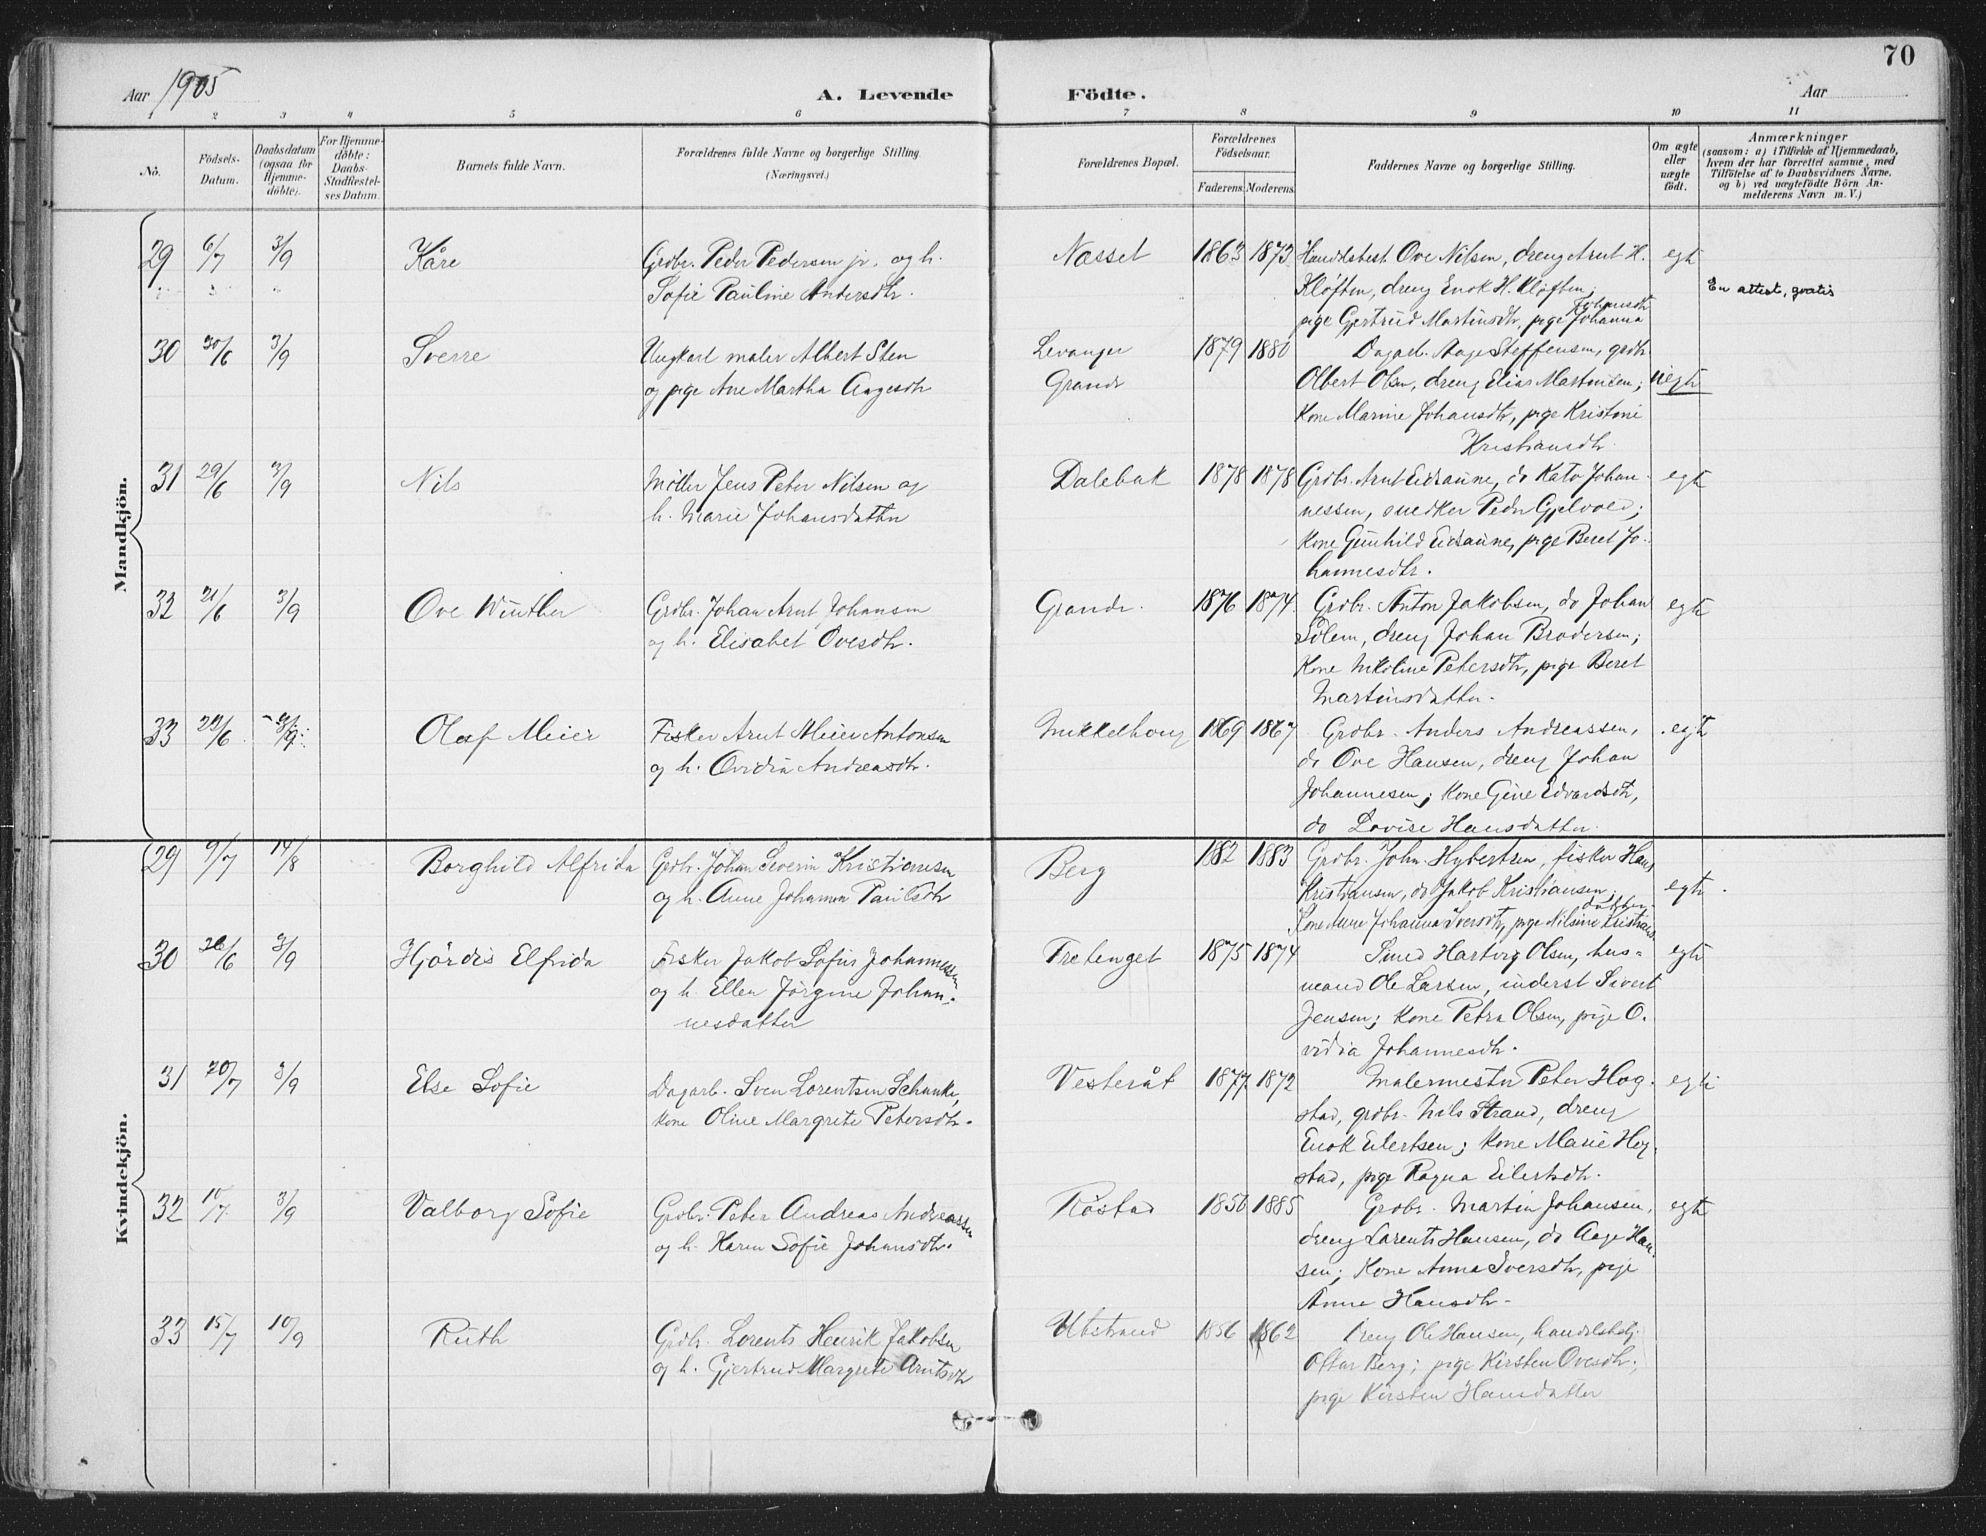 70
Aar 1905
A. Levende Födte.
Aar
1 2 3 4 5 6 7 8 9 10 11
No.
Födsels-Datum.
Daabsdatum (ogsaa for Hjemme-döbte).
For Hjemme-döbte: Daabs-Stadfæstel-ses Datum.
Barnets fulde Navn.
Forældrenes fulde Navne og borgerlige Stilling.
(Næringsvei.)
Forældrenes Bopæl.
Forældrenes Födselsaar.
Faderens. Moderens.
Faddernes Navne og borgerlige Stilling.
Om ægte eller uægte födt.
Anmærkninger
(saasom: a) i Tilfælde af Hjemmedaab,
hvem der har forrettet samme, med
Tilföielse af to Daabsvidners Navne,
og b) ved uægtefödte Börn An-
melderens Navn m. V.)
Mandkjön.
29 6/7 3/9 Kåre Grdbr. Peder Pedersen jr. og h. Næsset 1863 1873 Handelsbest. Ove Nilsen, dreng Arnt H. egte
Sofie Pauline Andersdtr. Kløften, dreng Enok H. Kløften; En attest, gratis
pige Gjertrud Martinsdtr, pige Johanna Johansdtr
30 30/6 3/9 Sverre Ungkarl maler Albert Sten Levanger 1879 1880 Dagarb. Aage Steffensen, grdbr
og pige Ane Martha Aagesdtr Grande Olbert Olsen, dreng Elias Martinsen; uegte
Kone Marine Johansdtr, pige Kristine
Kristiansdtr.
31 29/6 3/9 Nils Møller Jens Peter Nilsen og Dalebak 1878 1878 Grdbr. Arnt Eidsaune, do Kato Johan- egte
h. Marie Johansdatter nessen, snedker Peder Gjelvold;
Kone Gunhild Eidsaune, pige Beret Jo-
hannesdtr.
32 21/6 3/9 Ove Winther Grdbr. Johan Arnt Johansen Grande. 1876 1874 Grdbr. Anton Jakobsen, do Johan egte
og h. Elisabet Ovesdtr. Solem, dreng Johan Brodersen;
Kone Nikoline Petersdtr, pige Beret
Martinsdatter.
33 29/6 3/9 Olaf Meier Fisker Arnt Meier Antonsen Mikkelhoug 1869 1867 Grdbr. Anders Andreassen, egte
og h. Ovidia Andreasdtr. do Ove Hansen, dreng Johan
Johannesen; Kone Gine Edvardsdtr,
do Lovise Hansdatter.
Kvindekjön.
29 9/7 14/8 Borghild Alfrida Grdbr. Johan Severin Kristiansen Berg 1882 1883 Grdbr. John Hybertsen, fisker Hans
og h. Anne Johanna Paulsdtr Kristiansen, do Jakob Kristiansen; egte
Kone Anne Johanna Iversdtr, pige Nilsine Kristians datter
30 26/6 3/9 Hjördis Elfrida Fisker Jakob Sofus Johannessen Tretenget 1875 1874 Smed Hartvig Olsen, hus- egte
og h. Ellen Jørgine Johan- mand Ole Larsen, inderst Sivert
nesdatter Jensen; Kone Petra Olsen, pige O-
vidia Johannesdtr.
31 20/7 3/9 Else Sofie Dagarb. Sven Lorentsen Schanke, Vesteråt 1877 1872 Malermester Peter Hog- egte
Kone Oline Margrete Petersdtr. stad, grdbr. Nils Strand, dreng
Enok Eilertsen; Kone Marie Hog-
stad, pige Ragna Eilertsdtr.
32 10/7 3/9 Valborg Sofie Grdbr. Peter Andreas Andreassen Røstad 1856 1885 Grdbr. Martin Johansen, egte
og h. Karen Sofie Johansdtr. dreng Lorents Hansen, do Aage Han-
sen; Kone Anna Iversdtr, pige
Anne Hansdtr.
33 15/7 10/9 Ruth Grdbr. Lorents Henrik Jakobsen Utstrand 1856 1862 Dreng Ole Hansen, handelsbetj.
og h. Gjertrud Margrete Arntsdtr Ottar Berg; pige Kirsten Ovesdtr.;
pige Kirsten Hansdatter